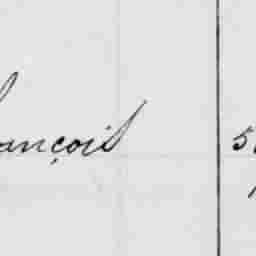 ançois 5